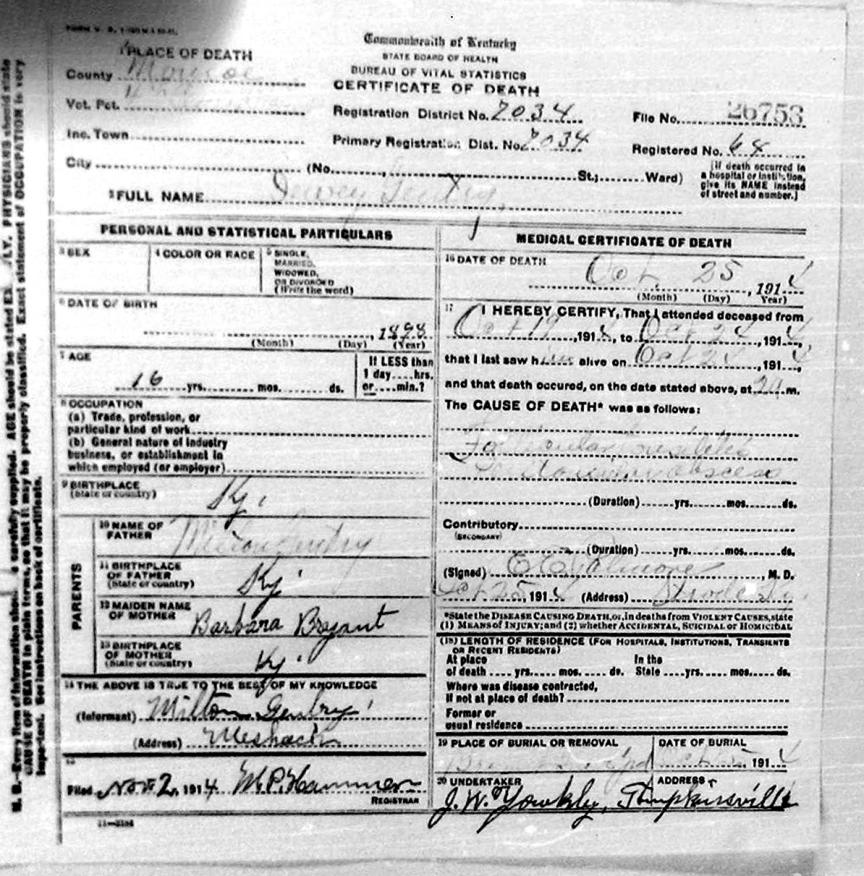 Commonwealth of Kentucky
STATE BOARD OF HEALTH
BUREAU OF VITAL STATISTICS
CERTIFICATE OF DEATH
1 PLACE OF DEATH
County Monroe
Vot. Pct.
Inc. Town
City (No. St.; Ward)
Registration District No. 7034
Primary Registration Dist. No. 7034
File No. 26753
Registered No. 64
(If death occurred in
a hospital or institution,
give its NAME instead
of street and number.)
2 FULL NAME Dewey Gentry
PERSONAL AND STATISTICAL PARTICULARS
3 SEX
4 COLOR OR RACE
5 SINGLE,
MARRIED,
WIDOWED,
OR DIVORCED
(Write the word)
6 DATE OF BIRTH
1898
(Month) (Day) (Year)
7 AGE
16 yrs. mos. ds.
If LESS than
1 day....hrs.
or....min.?
8 OCCUPATION
(a) Trade, profession, or
particular kind of work
(b) General nature of industry
business, or establishment in
which employed (or employer)
9 BIRTHPLACE
(State or country)
Ky.
PARENTS
10 NAME OF
FATHER
Milton Gentry
11 BIRTHPLACE
OF FATHER
(State or country)
Ky.
12 MAIDEN NAME
OF MOTHER
Barbara Bryant
13 BIRTHPLACE
OF MOTHER
(State or country)
Ky.
14 THE ABOVE IS TRUE TO THE BEST OF MY KNOWLEDGE
(Informant) Milton Gentry
(Address) Meshack
15
Filed Nov 2, 1914 M.P. Hammer
REGISTRAR
11—3184
MEDICAL CERTIFICATE OF DEATH
16 DATE OF DEATH
Oct. 25, 1914
(Month) (Day) Year)
17 I HEREBY CERTIFY, That I attended deceased from
Oct 19, 1914, to Oct 24, 1914,
that I last saw him alive on Oct 24, 1914,
and that death occured, on the date stated above, at m.
The CAUSE OF DEATH* was as follows:
Follicular Tonsilitis
abscess
(Duration) yrs. mos. ds.
Contributory
(SECONDARY)
(Duration) yrs. mos. ds.
(Signed) M.D.
Oct 25, 1914 (Address) Ky.
*State the DISEASE CAUSING DEATH, or, in deaths from VIOLENT CAUSES, state
(1) MEANS OF INJURY; and (2) whether ACCIDENTAL, SUICIDAL OR HOMICIDAL
(18) LENGTH OF RESIDENCE (FOR HOSPITALS, INSTITUTIONS, TRANSIENTS
OR RECENT RESIDENTS)
At place In the
of death yrs. mos. ds. State yrs. mos. ds.
Where was disease contracted,
if not at place of death?
Former or
usual residence
19 PLACE OF BURIAL OR REMOVAL
DATE OF BURIAL
1914
20 UNDERTAKER
ADDRESS
J. W. Tompkinsville
N. B.—Every item of information should be carefully supplied. AGE should be stated EXACTLY. PHYSICIANS should state
CAUSE OF DEATH in plain terms, so that it may be properly classified. Exact statement of OCCUPATION is very
important. See instructions on back of certificate.